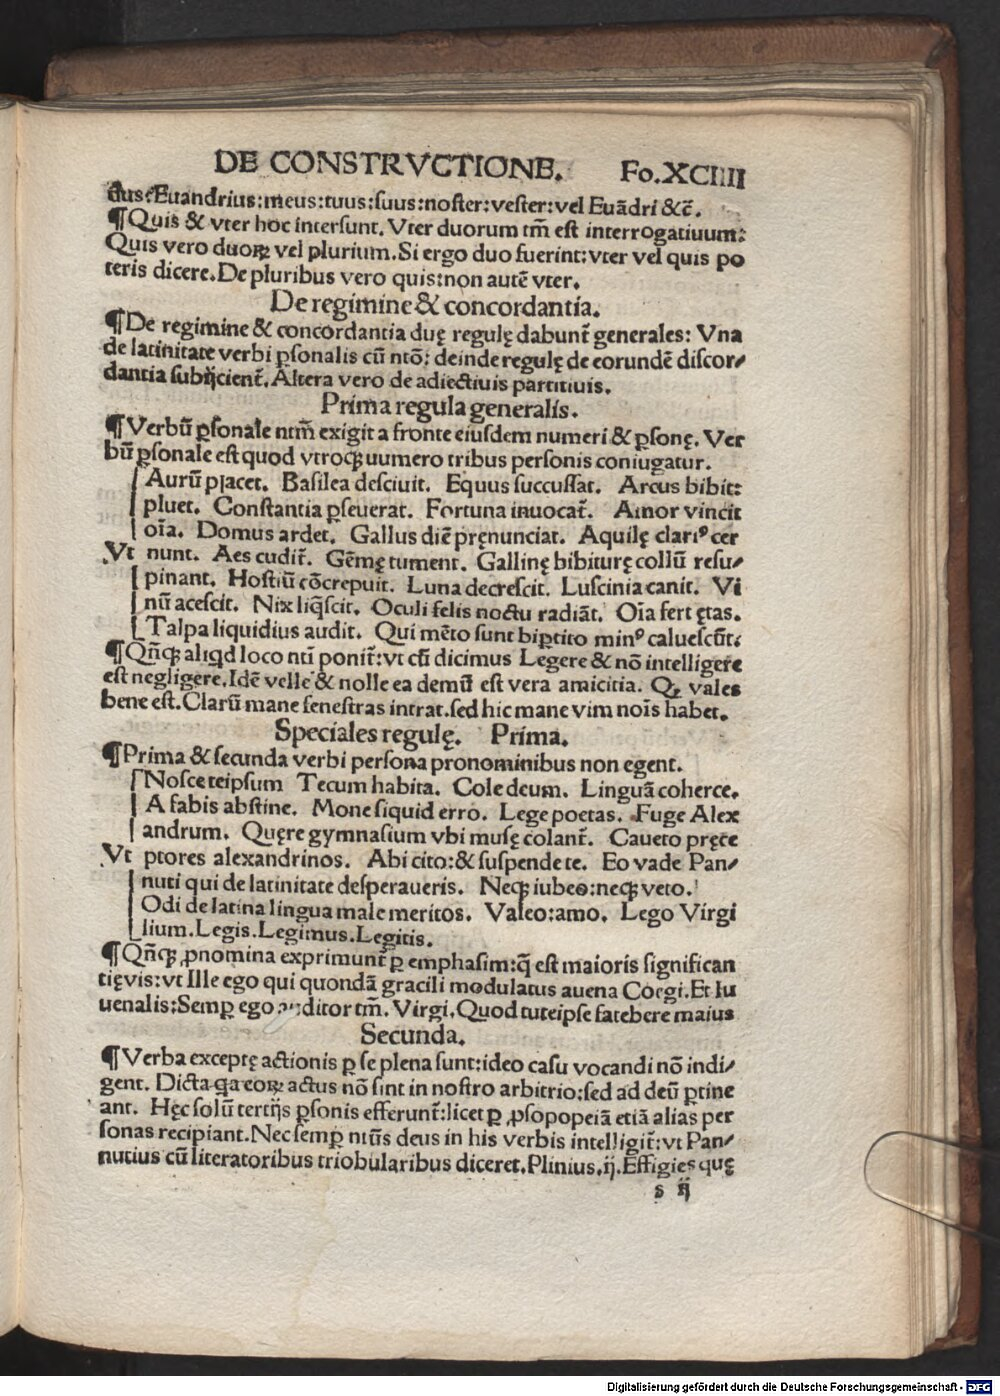 DE CONSTRVCTIONE. Fo.XCIIII
dus:Euandrius:meus:tuus:suus:noster:vester:vel Euādri &c̄.
¶Quis & vter hoc intersunt. Vter duorum tm̄ est interrogatiuum:
Quis vero duoꝝ vel plurium. Si ergo duo fuerint: vter vel quis po
teris dicere. De pluribus vero quis:non autē vter.
De regimine & concordantia.
¶De regimine & concordantia duę regulę dabunt᷑ generales: Vna
de latinitate verbi ꝑsonalis cū ntō: deinde regulę de eorundē discor⸗
dantia subijcient᷑. Altera vero de adiectiuis partitiuis.
Prima regula generalis.
¶Verbū ꝑsonale ntm̄ exigit a fronte eiusdem numeri & ꝑsonę. Ver
bū ꝑsonale est quod vtroqꝫ uumero tribus personis coniugatur.
Aurū placet. Basilea desciuit. Equus succussat. Arcus bibit:
pluet. Constantia ꝑseuerat. Fortuna inuocat᷑. Amor vincit
oīa. Domus ardet. Gallus diē pręnunciat. Aquilę clariꝰ cer
Vt nunt. Aes cudit᷑. Gēmę tument. Gallinę bibiturę collū resu⸗
pinant. Hostiū cōcrepuit. Luna decrescit. Luscinia canit. Vi
nū acescit. Nix liq̄scit. Oculi felis noctu radiāt. Oīa fert ętas.
Talpa liquidius audit. Qui mēto sunt biꝑtito minꝰ caluescūt:
¶Qn̄qꝫ aliqd loco nti ponit᷑: vt cū dicimus Legere & nō intelligere
est negligere. Idē velle & nolle ea demū est vera amicitia. Qꝫ vales
bene est. Clarū mane fenestras intrat. sed hic mane vim nois habet.
Speciales regulę. Prima.
¶Prima & secunda verbi persona pronominibus non egent.
Nosce teipsum Tecum habita. Cole deum. Linguā coherce.
A fabis abstine. Mone siquid erro. Lege poetas. Fuge Alex
andrum. Quęre gymnasium vbi musę colant᷑. Caueto pręce
Vt ptores alexandrinos. Abi cito:& suspende te. Eo vade Pan⸗
nuti qui de latinitate desperaueris. Neqꝫ iubeo:neqꝫ veto.
Odi de latina lingua male meritos. Valeo:amo. Lego Virgi
lium. Legis. Legimus. Legitis.
¶Qn̄qꝫ ꝓnomina exprimunt᷑ ꝑ emphasim: q̄ est maioris significan
tięvis: vt Ille ego qui quondā gracili modulatus auena Coegi. Et Iu
uenalis: Semꝑ ego auditor tm̄. Virgi. Quod tuteipse fatebere maius
Secunda.
¶Verba exceptę actionis ꝑ se plena sunt: ideo casu vocandi nō indi⸗
gent. Dicta qa eoꝝ actus nō sint in nostro arbitrio: sed ad deū ꝑtine
ant. Hęc solū tertijs ꝑsonis efferunt᷑: licet ꝑ ꝓsopopeiā etiā alias per
sonas recipiant. Nec semꝑ ntūs deus in his verbis intelligit᷑: vt Pan⸗
nutius cū literatoribus triobularibus diceret. Plinius. ij. Effigies quę
s ij
Digitalisierung gefördert durch die Deutsche Forschungsgemeinschaft - DFG